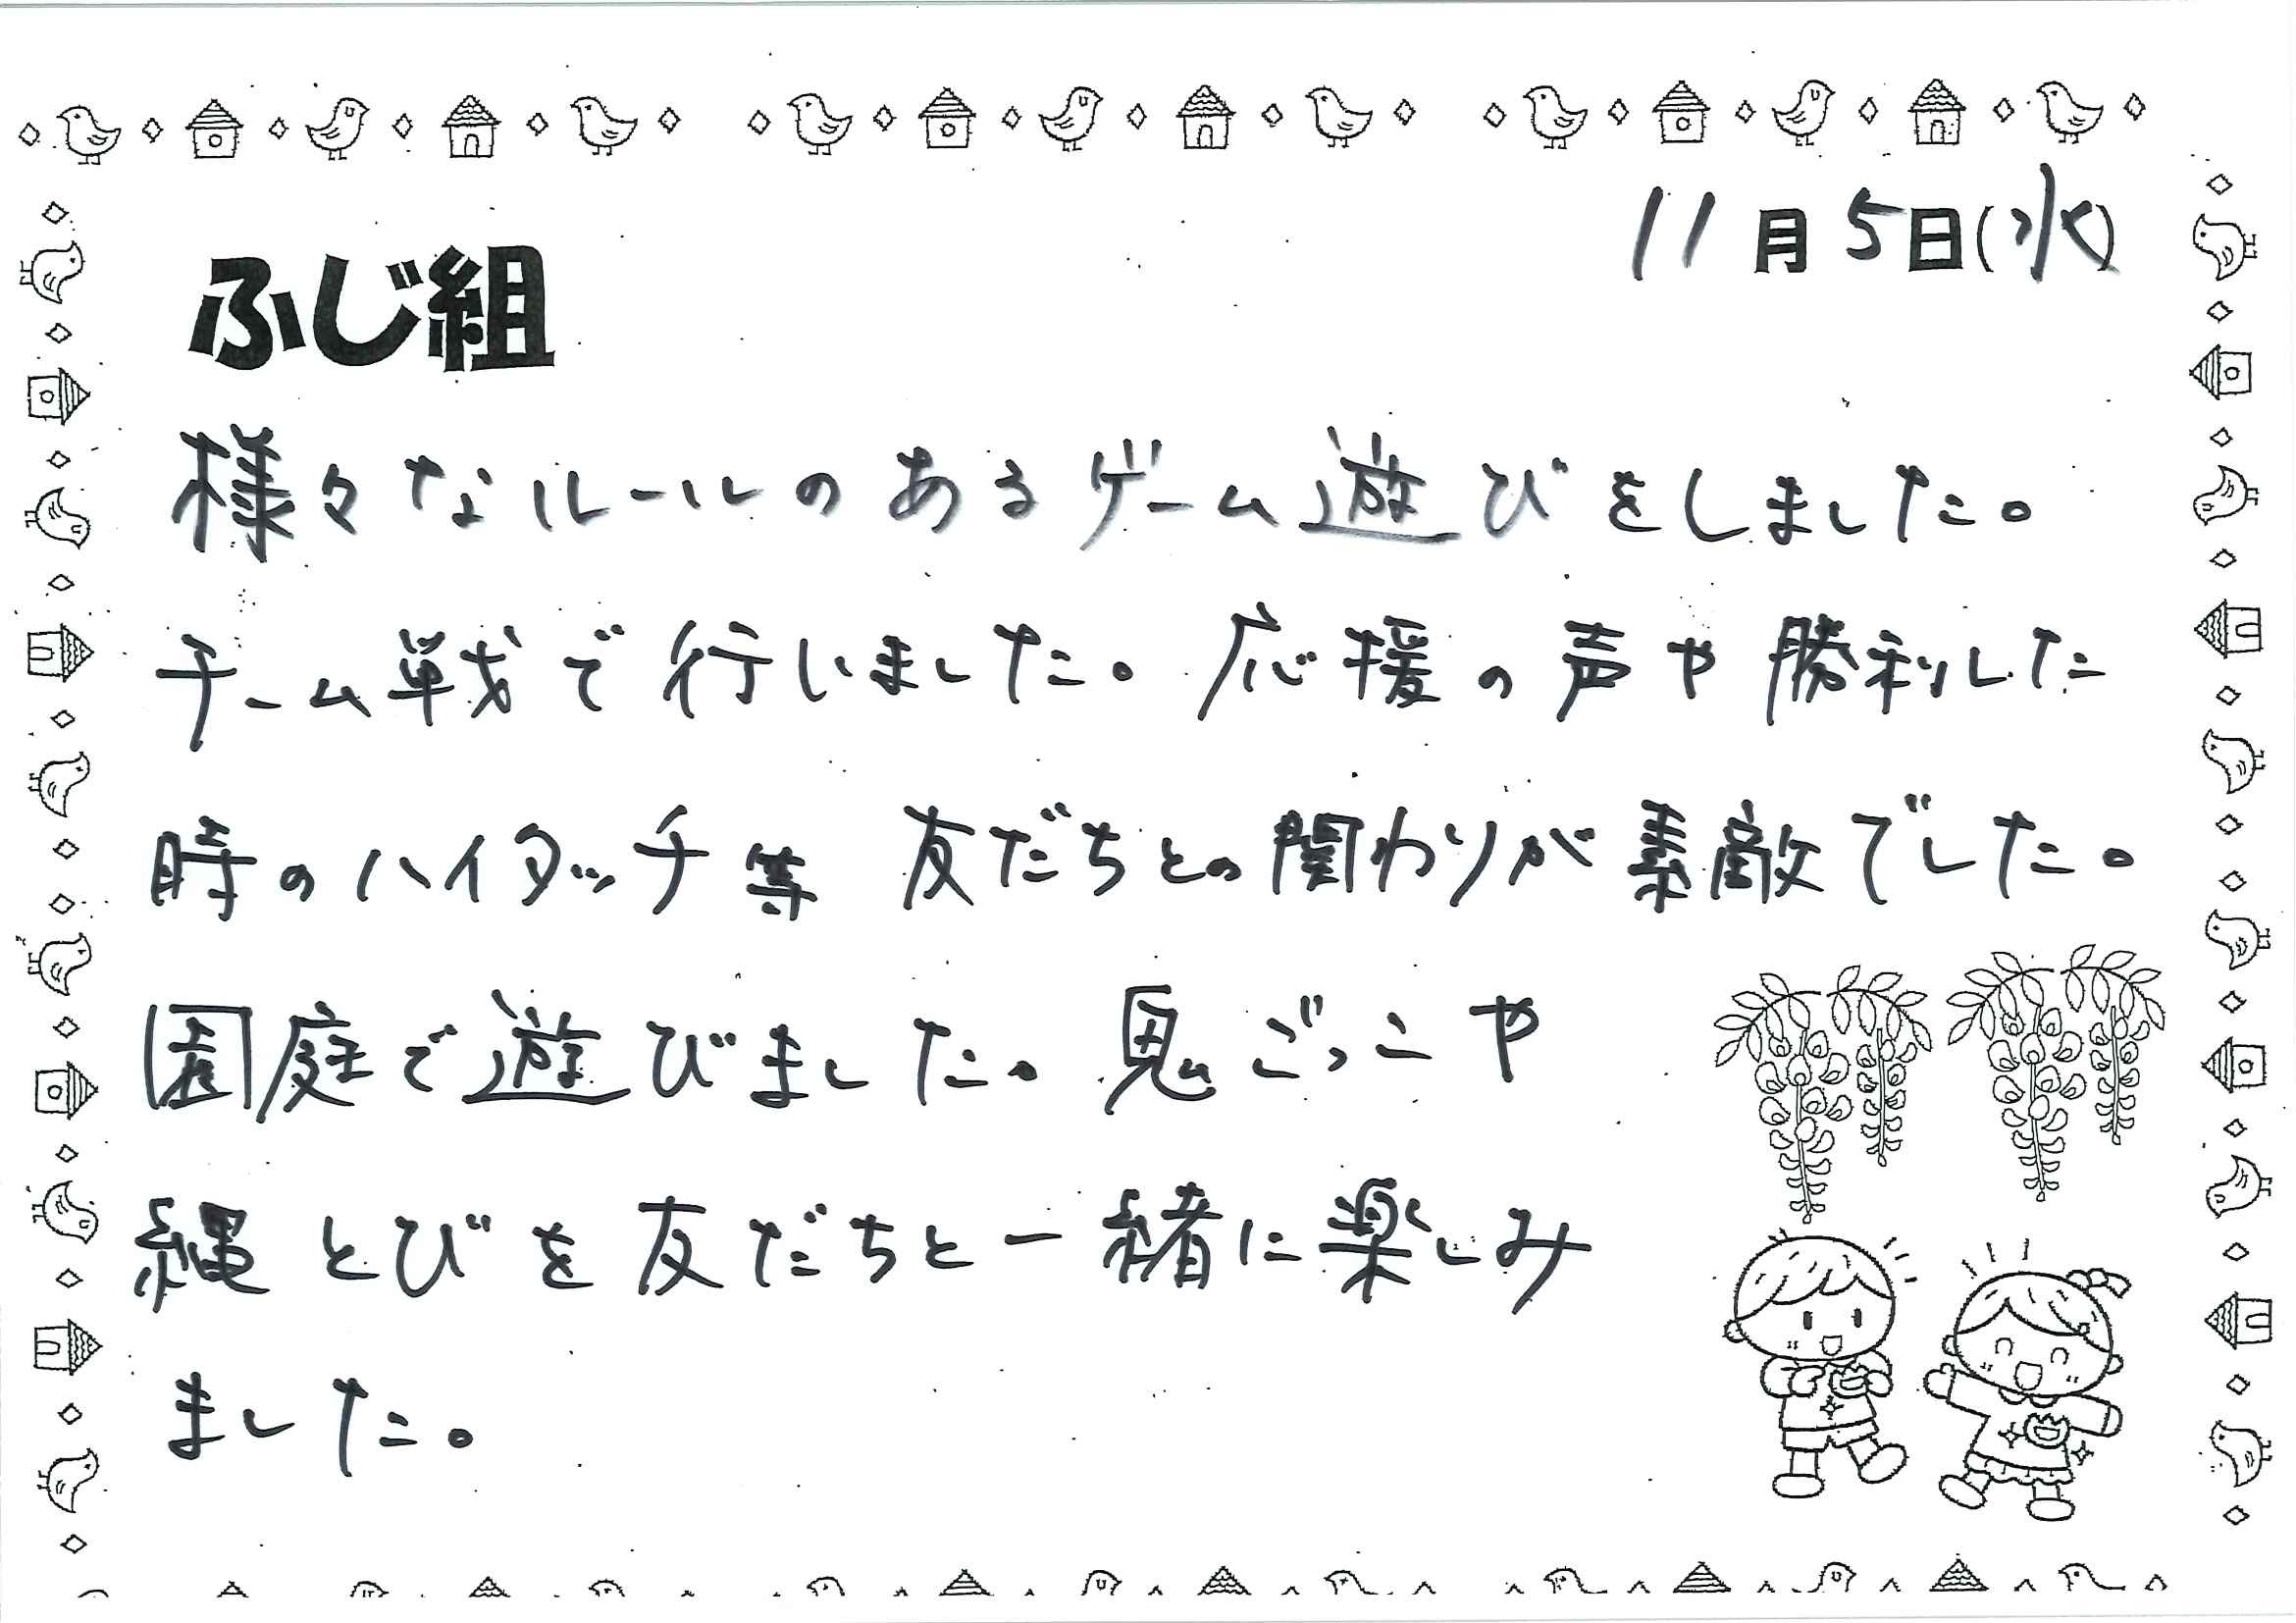 11月5日(水)
ふじ組
様々なルールのあるゲーム遊びをしました。
チーム戦で行いました。応援の声や勝利した
時のハイタッチ等 友だちとの関わりが素敵でした。
園庭で遊びました。鬼ごっこや
縄とびを友だちと一緒に楽しみ
ました。